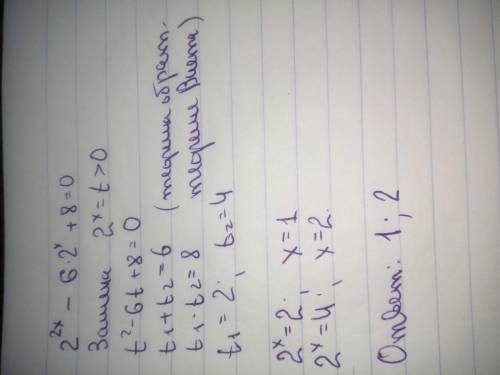 2^{2x} - 6·2^x + 8 = 0
Замена 2^x = t > 0
t² - 6t + 8 = 0
t₁ + t₂ = 6 (теорема обрат.
t₁ · t₂ = 8 теореме Виета)
t₁ = 2; t₂ = 4
2^x = 2; x = 1
2^x = 4; x = 2.
Ответ: 1; 2